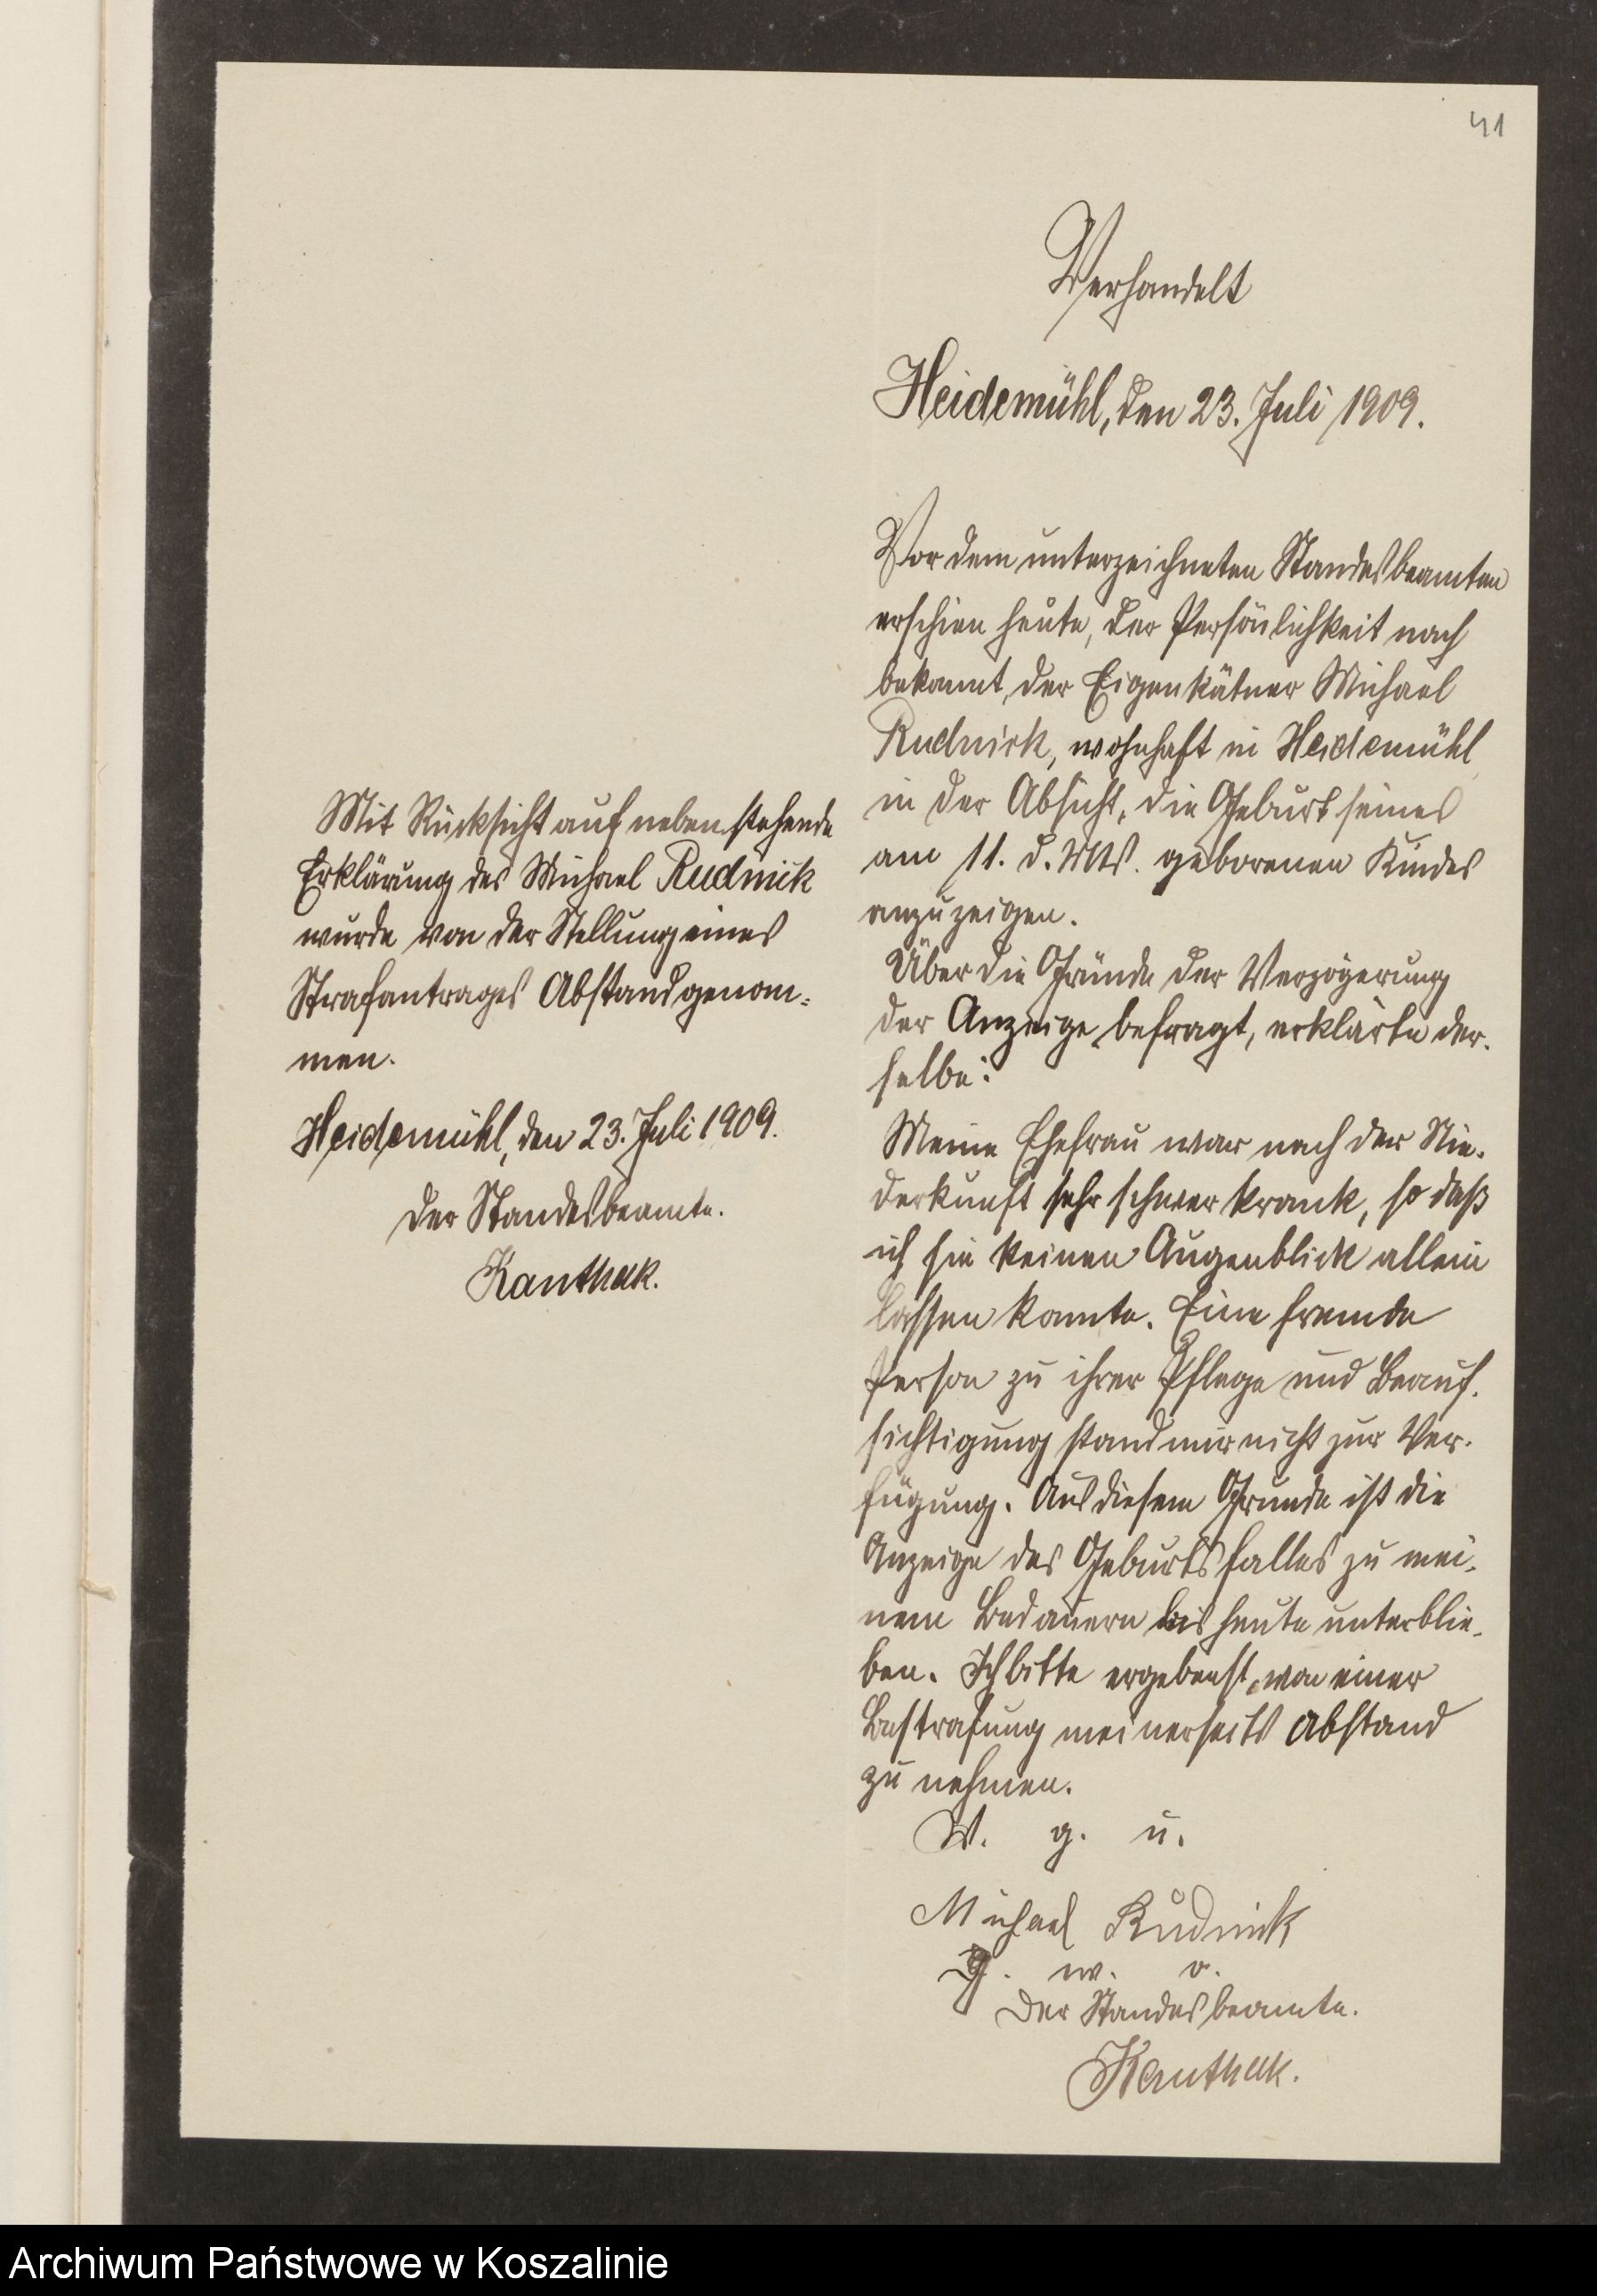 41
Verhandelt
Heidemühl, den 23. Juli 1909.
Vor dem unterzeichneten Standesbeamten
erschien heute, der Persönlichkeit nach
bekannt, der Eigenkätner Michael
Rudnick, wohnhaft in Heidemühl
in der Absicht, die Geburt seines
am 11. d. Mts. geborenen Kindes
anzuzeigen.
Über die Gründe der Verzögerung
der Anzeige befragt, erklärte der-
selbe:
Meine Ehefrau war nach der Nie-
derkunft sehr schwer krank, so daß
ich sie keinen Augenblick allein
lassen konnte. Eine fremde
Person zu ihrer Pflege und Beauf-
sichtigung stand mir nicht zur Ver-
fügung. Aus diesem Grunde ist die
Anzeige des Geburtsfalles zu mei-
nem Bedauern bis heute unterblie-
ben. Ich bitte ergebenst, von einer
Bestrafung meinerseits Abstand
zu nehmen.
V. g. u.
Michael Rudnick
g. w. o.
Der Standesbeamte.
Kanthak.
Mit Rücksicht auf nebenstehende
Erklärung des Michael Rudnick
wurde von der Stellung eines
Strafantrages Abstand genom-
men.
Heidemühl, den 23. Juli 1909.
Der Standesbeamte.
Kanthak.
Archiwum Państwowe w Koszalinie